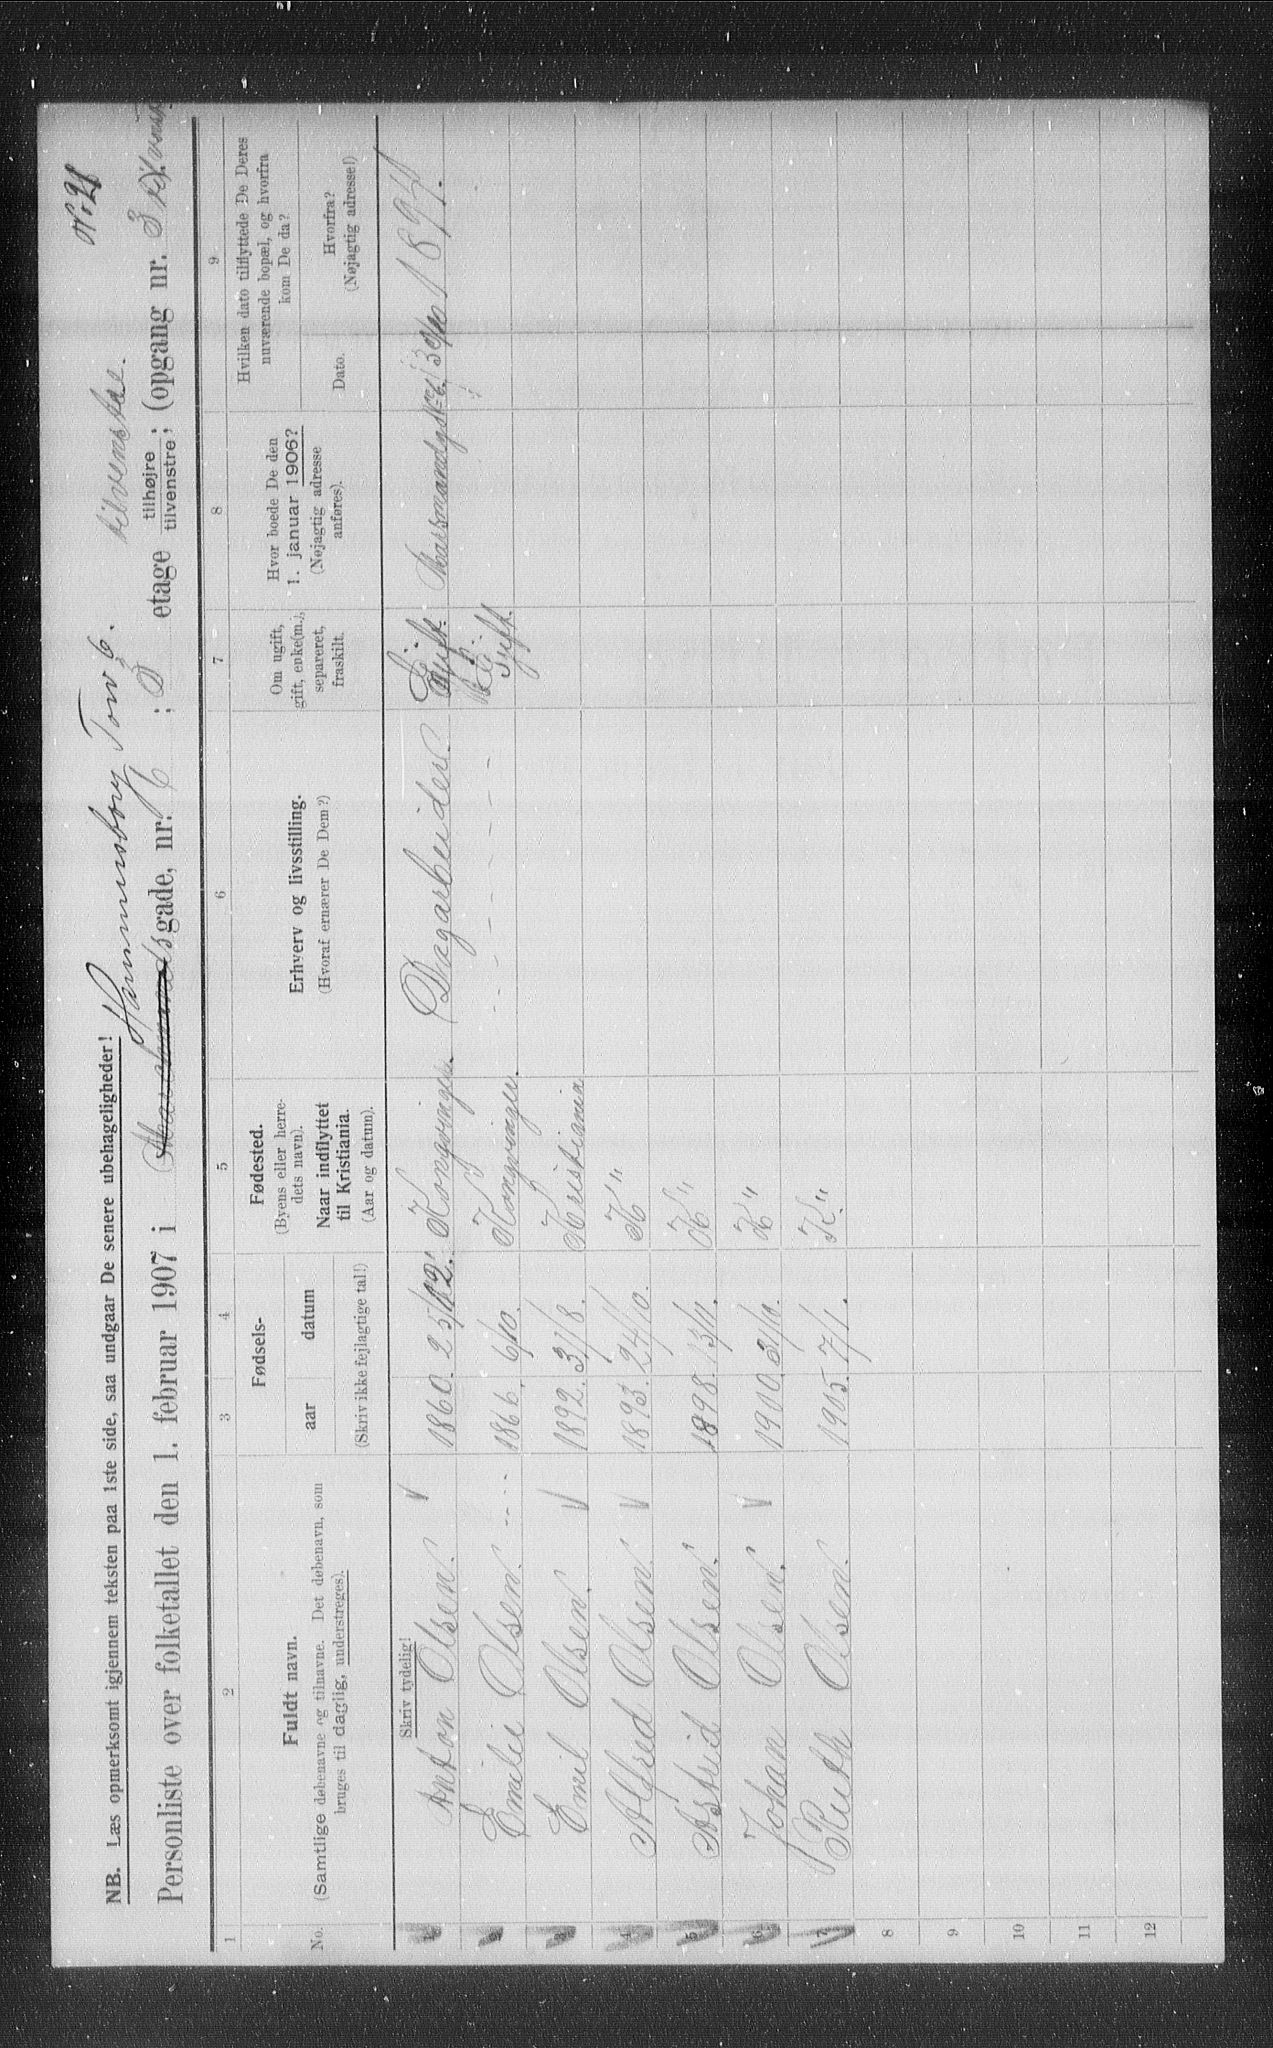 No. 21
NB. Læs opmerksomt igjennem teksten paa 1ste side, saa undgaar De senere ubehageligheder!
Hammersborg Torv 6. tilvenstre.
Personliste over folketallet den 1. februar 1907 i gade, nr. 6; etage tilhøjre tilvenstre; (opgang nr. 3
1 2 3 4 5 6 7 8 9
No.
Fuldt navn.
(Samtlige døbenavne og tilnavne. Det døbenavn, som
bruges til daglig, understreges).
Fødsels-
aar datum
(Skriv ikke fejlagtige tal!)
Fødested.
(Byens eller herre-
dets navn).
Naar indflyttet
til Kristiania.
(Aar og datum).
Erhverv og livsstilling.
(Hvoraf ernærer De Dem?)
Om ugift,
gift, enke(m.),
separeret,
fraskilt.
Hvor boede De den
1. januar 1906?
(Nøjagtig adresse
anføres).
Hvilken dato tilflyttede De Deres
nuværende bopæl, og hvorfra
kom De da?
Dato.
Hvorfra?
(Nøjagtig adresse!)
Skriv tydelig!
1 Anton Olsen. 1860. Kongvinger. Dagarbeider Gift.
2 Emilie Olsen. 1866. 6/10. Kongvinger. Gift.
3 Emil Olsen. 1892. 31/8. Kristiania
4 Alfred Olsen. 1893. 24/10. K "
5 Astrid Olsen. 1898. 13/11. K "
6 Johan Olsen. 1900. K "
7 Ruth Olsen. 1905. 7/1. K "
8
9
10
11
12